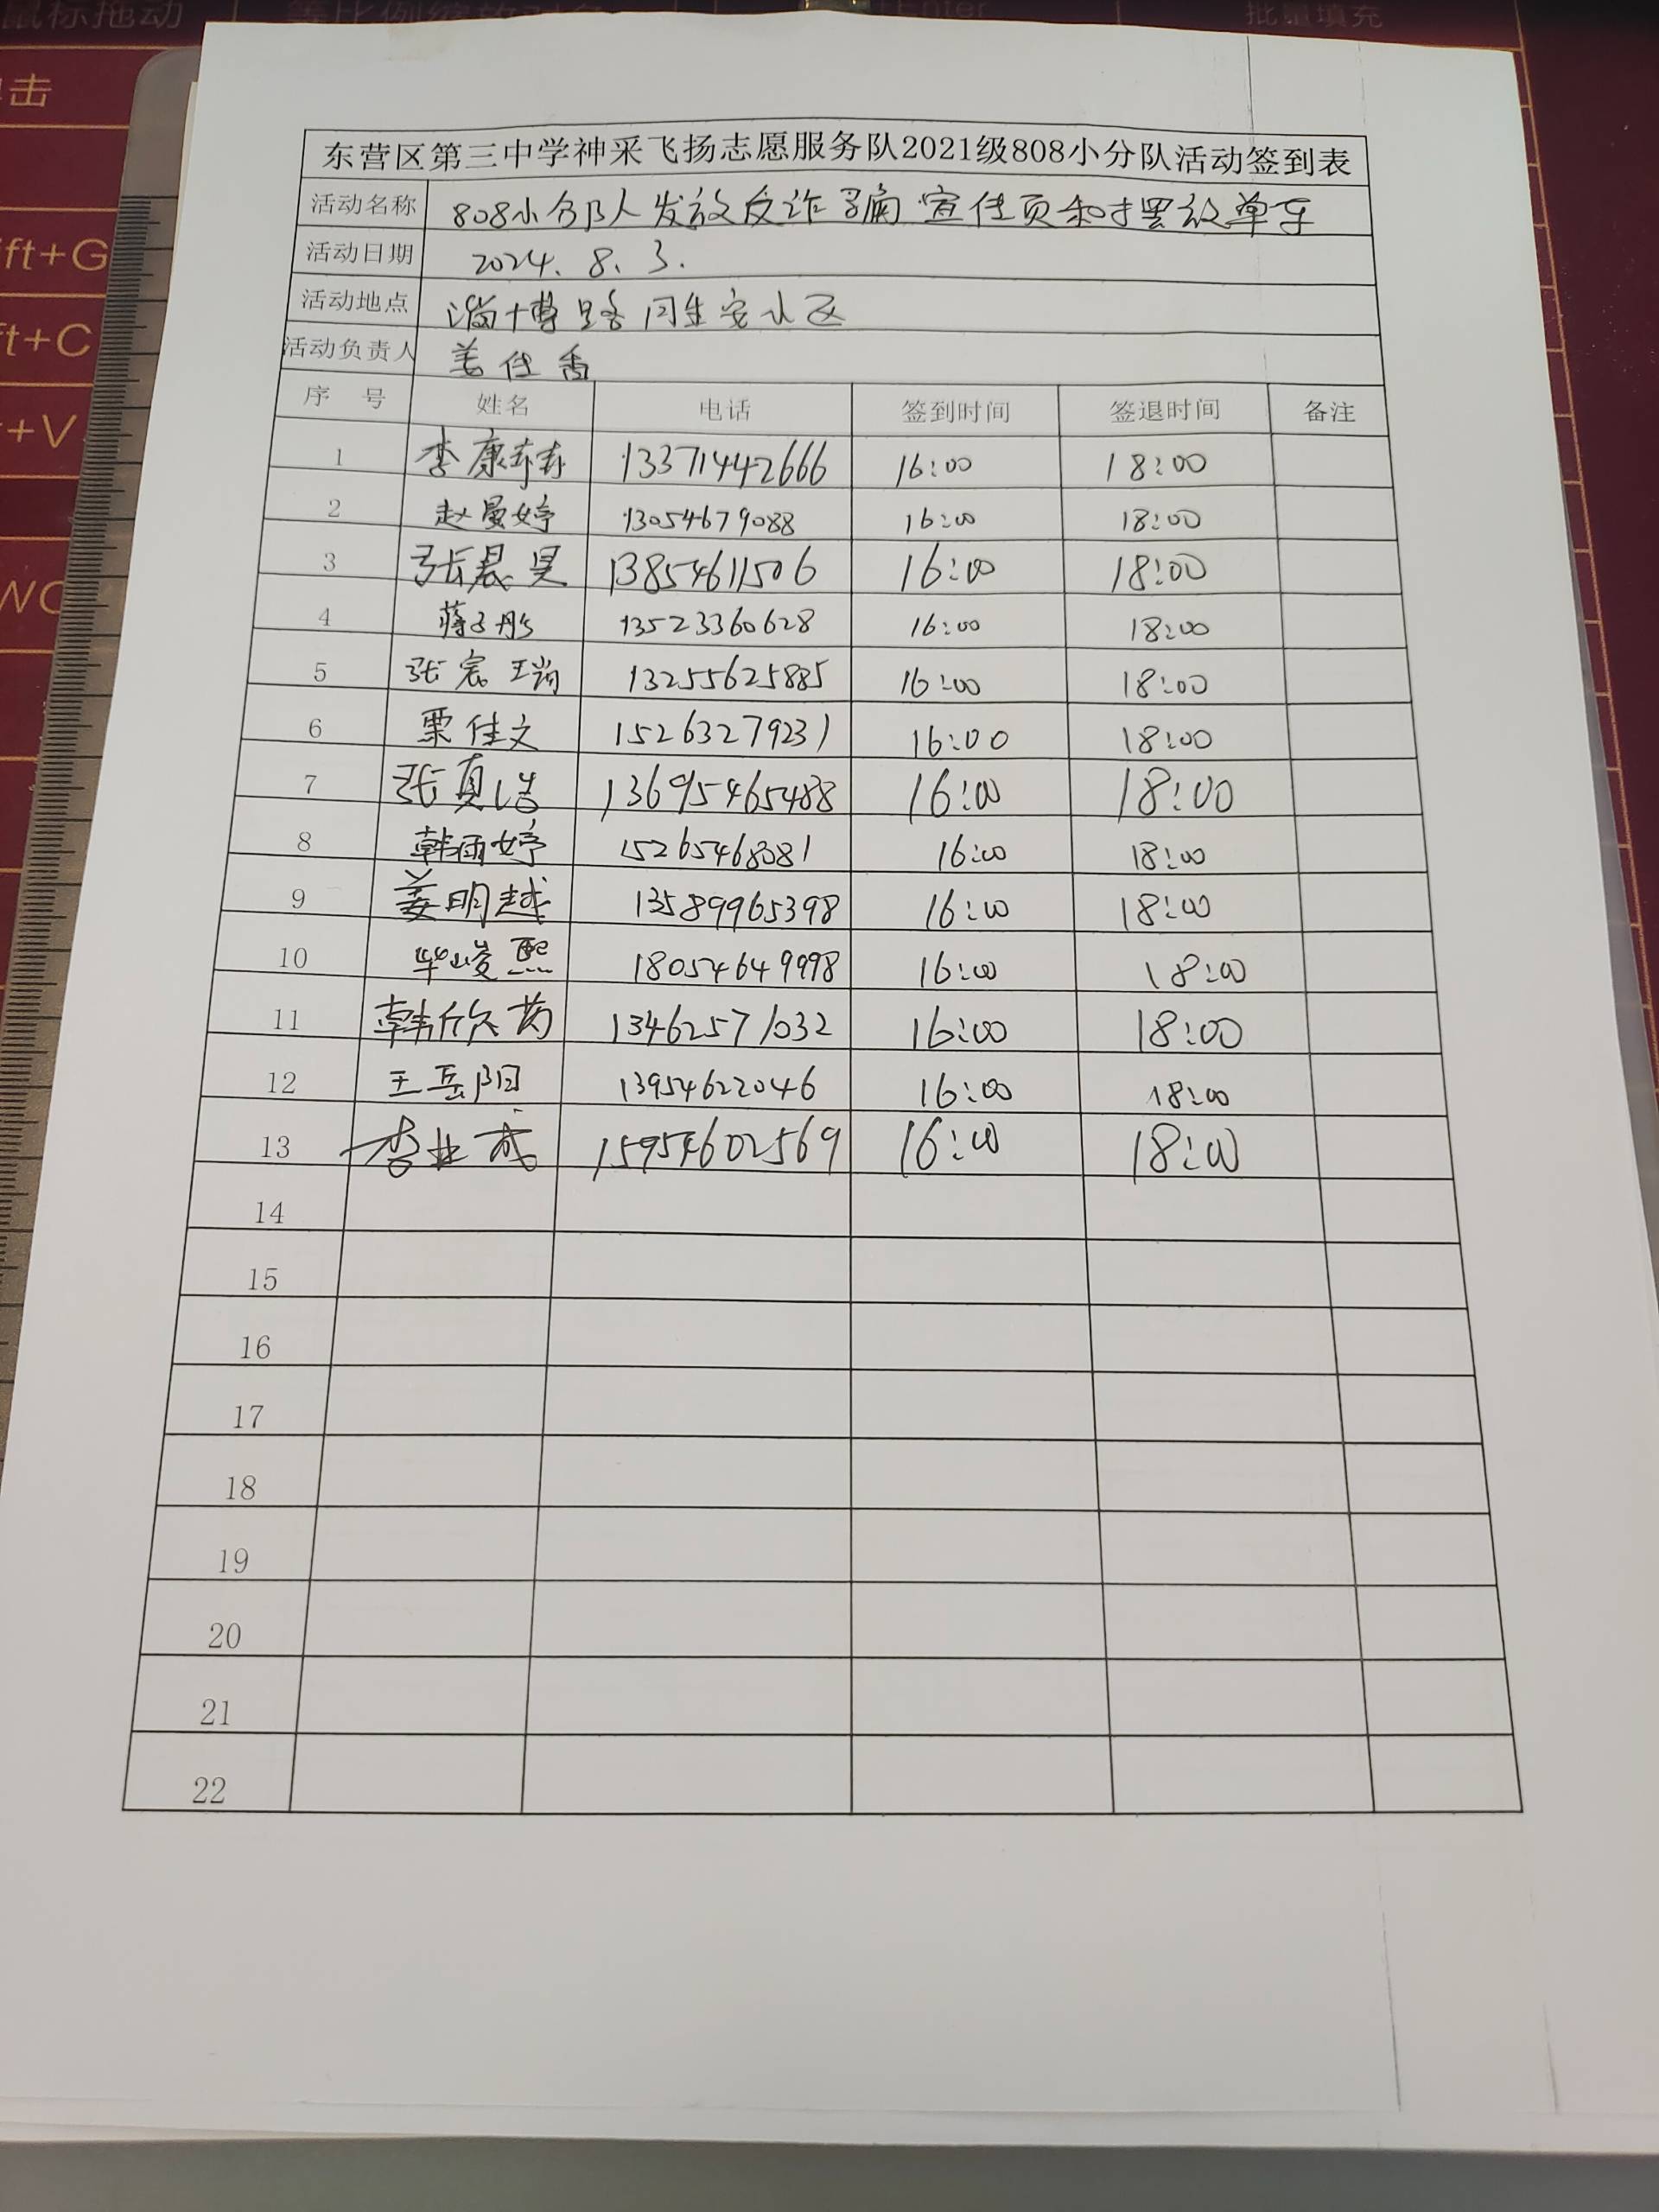 鼠标拖动
Enter
批量填充
单击
ft+G
ft+C
+V
东营区第三中学神采飞扬志愿服务队2021级808小分队活动签到表
活动名称 808小分队人发放反诈骗宣传页和摆放单车
活动日期 2024.8.3.
活动地点 淄博路同生安小区
活动负责人 姜佳香
序 号 姓名 电话 签到时间 签退时间 备注
1 李康 13371442666 16:00 18:00
2 赵曼婷 13054679088 16:00 18:00
3 张晨昊 13854611506 16:00 18:00
4 蒋子彤 13523360628 16:00 18:00
5 张宸瑞 13255625885 16:00 18:00
6 栗佳文 15263279231 16:00 18:00
7 张真浩 13695465488 16:00 18:00
8 韩雨婷 15265468081 16:00 18:00
9 姜明越 13589965398 16:00 18:00
10 毕峻熙 18054649998 16:00 18:00
11 韩欣芮 13462571032 16:00 18:00
12 王岳阳 13954622046 16:00 18:00
13 李业成 15954602569 16:00 18:00
14
15
16
17
18
19
20
21
22